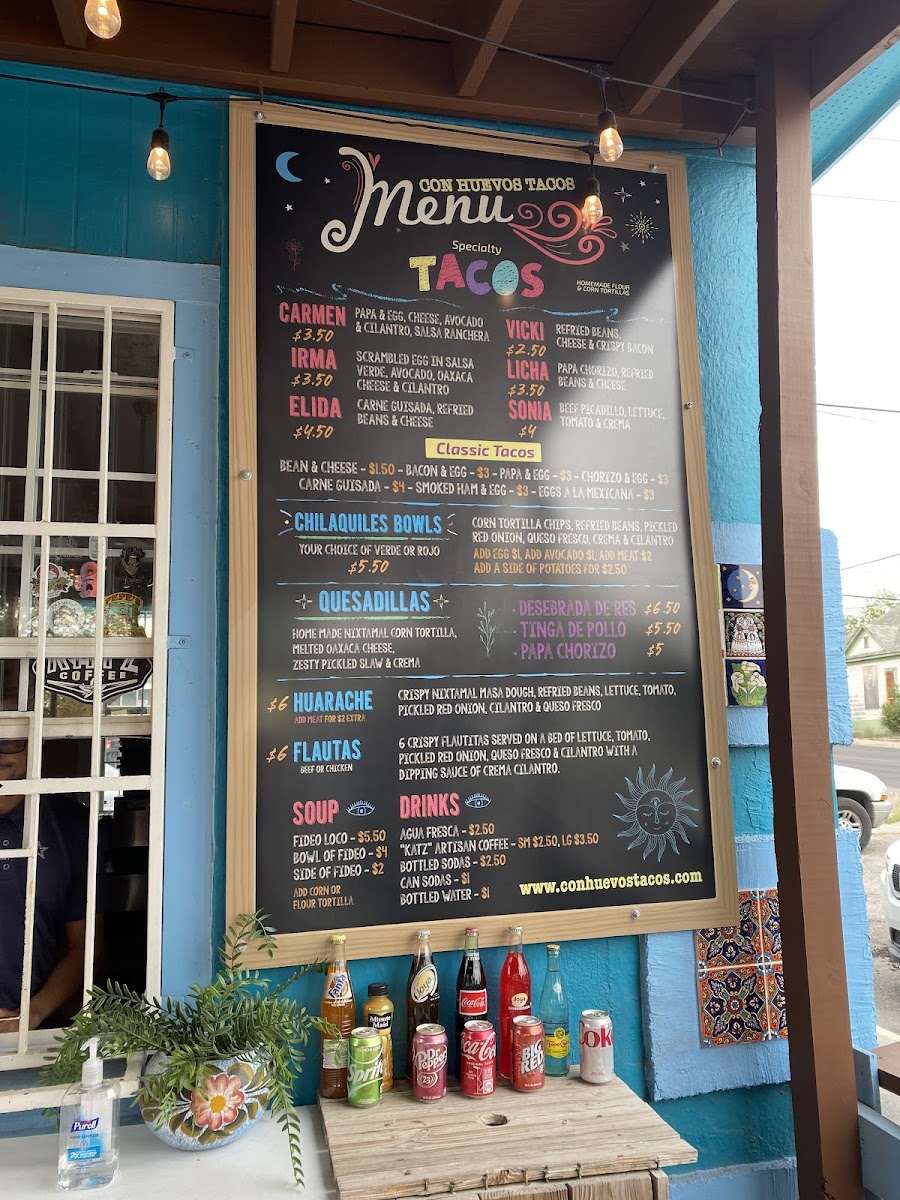 CON HUEVOS TACOS
Menu
Specialty
TACOS
HOMEMADE FLOUR
& CORN TORTILLAS
CARMEN
$3.50
PAPA & EGG, CHEESE, AVOCADO
& CILANTRO, SALSA RANCHERA
IRMA
$3.50
SCRAMBLED EGG IN SALSA
VERDE, AVOCADO, OAXACA
CHEESE & CILANTRO
ELIDA
$4.50
CARNE GUISADA, REFRIED
BEANS & CHEESE
VICKI
$2.50
REFRIED BEANS,
CHEESE & CRISPY BACON
LICHA
$3.50
PAPA CHORIZO, REFRIED
BEANS & CHEESE
SONIA
$4
BEEF PICADILLO, LETTUCE,
TOMATO & CREMA
Classic Tacos
BEAN & CHEESE - $1.50 - BACON & EGG - $3 - PAPA & EGG - $3 - CHORIZO & EGG - $3
CARNE GUISADA - $4 - SMOKED HAM & EGG - $3 - EGGS A LA MEXICANA - $3
CHILAQUILES BOWLS
YOUR CHOICE OF VERDE OR ROJO
$5.50
CORN TORTILLA CHIPS, REFRIED BEANS, PICKLED
RED ONION, QUESO FRESCO, CREMA & CILANTRO
ADD EGG $1, ADD AVOCADO $1, ADD MEAT $2
ADD A SIDE OF POTATOES FOR $2.50
QUESADILLAS
HOME MADE NIXTAMAL CORN TORTILLA,
MELTED OAXACA CHEESE,
ZESTY PICKLED SLAW & CREMA
· DESEBRADA DE RES $6.50
· TINGA DE POLLO $5.50
· PAPA CHORIZO $5
$6 HUARACHE
ADD MEAT FOR $2 EXTRA
CRISPY NIXTAMAL MASA DOUGH, REFRIED BEANS, LETTUCE, TOMATO,
PICKLED RED ONION, CILANTRO & QUESO FRESCO
$6 FLAUTAS
BEEF OR CHICKEN
6 CRISPY FLAUTITAS SERVED ON A BED OF LETTUCE, TOMATO,
PICKLED RED ONION, QUESO FRESCO & CILANTRO WITH A
DIPPING SAUCE OF CREMA CILANTRO.
SOUP
FIDEO LOCO - $5.50
BOWL OF FIDEO - $4
SIDE OF FIDEO - $2
ADD CORN OR
FLOUR TORTILLA
DRINKS
AGUA FRESCA - $2.50
"KATZ" ARTISAN COFFEE - SM $2.50, LG $3.50
BOTTLED SODAS - $2.50
CAN SODAS - $1
BOTTLED WATER - $1
www.conhuevostacos.com
KATZ
COFFEE
Fanta
Minute
Maid
Joya
Coca-Cola
Joya
Topo Chico
Sprite
Dr
Pepper
23
Coca-Cola
BIG
RED
Coke
Purell